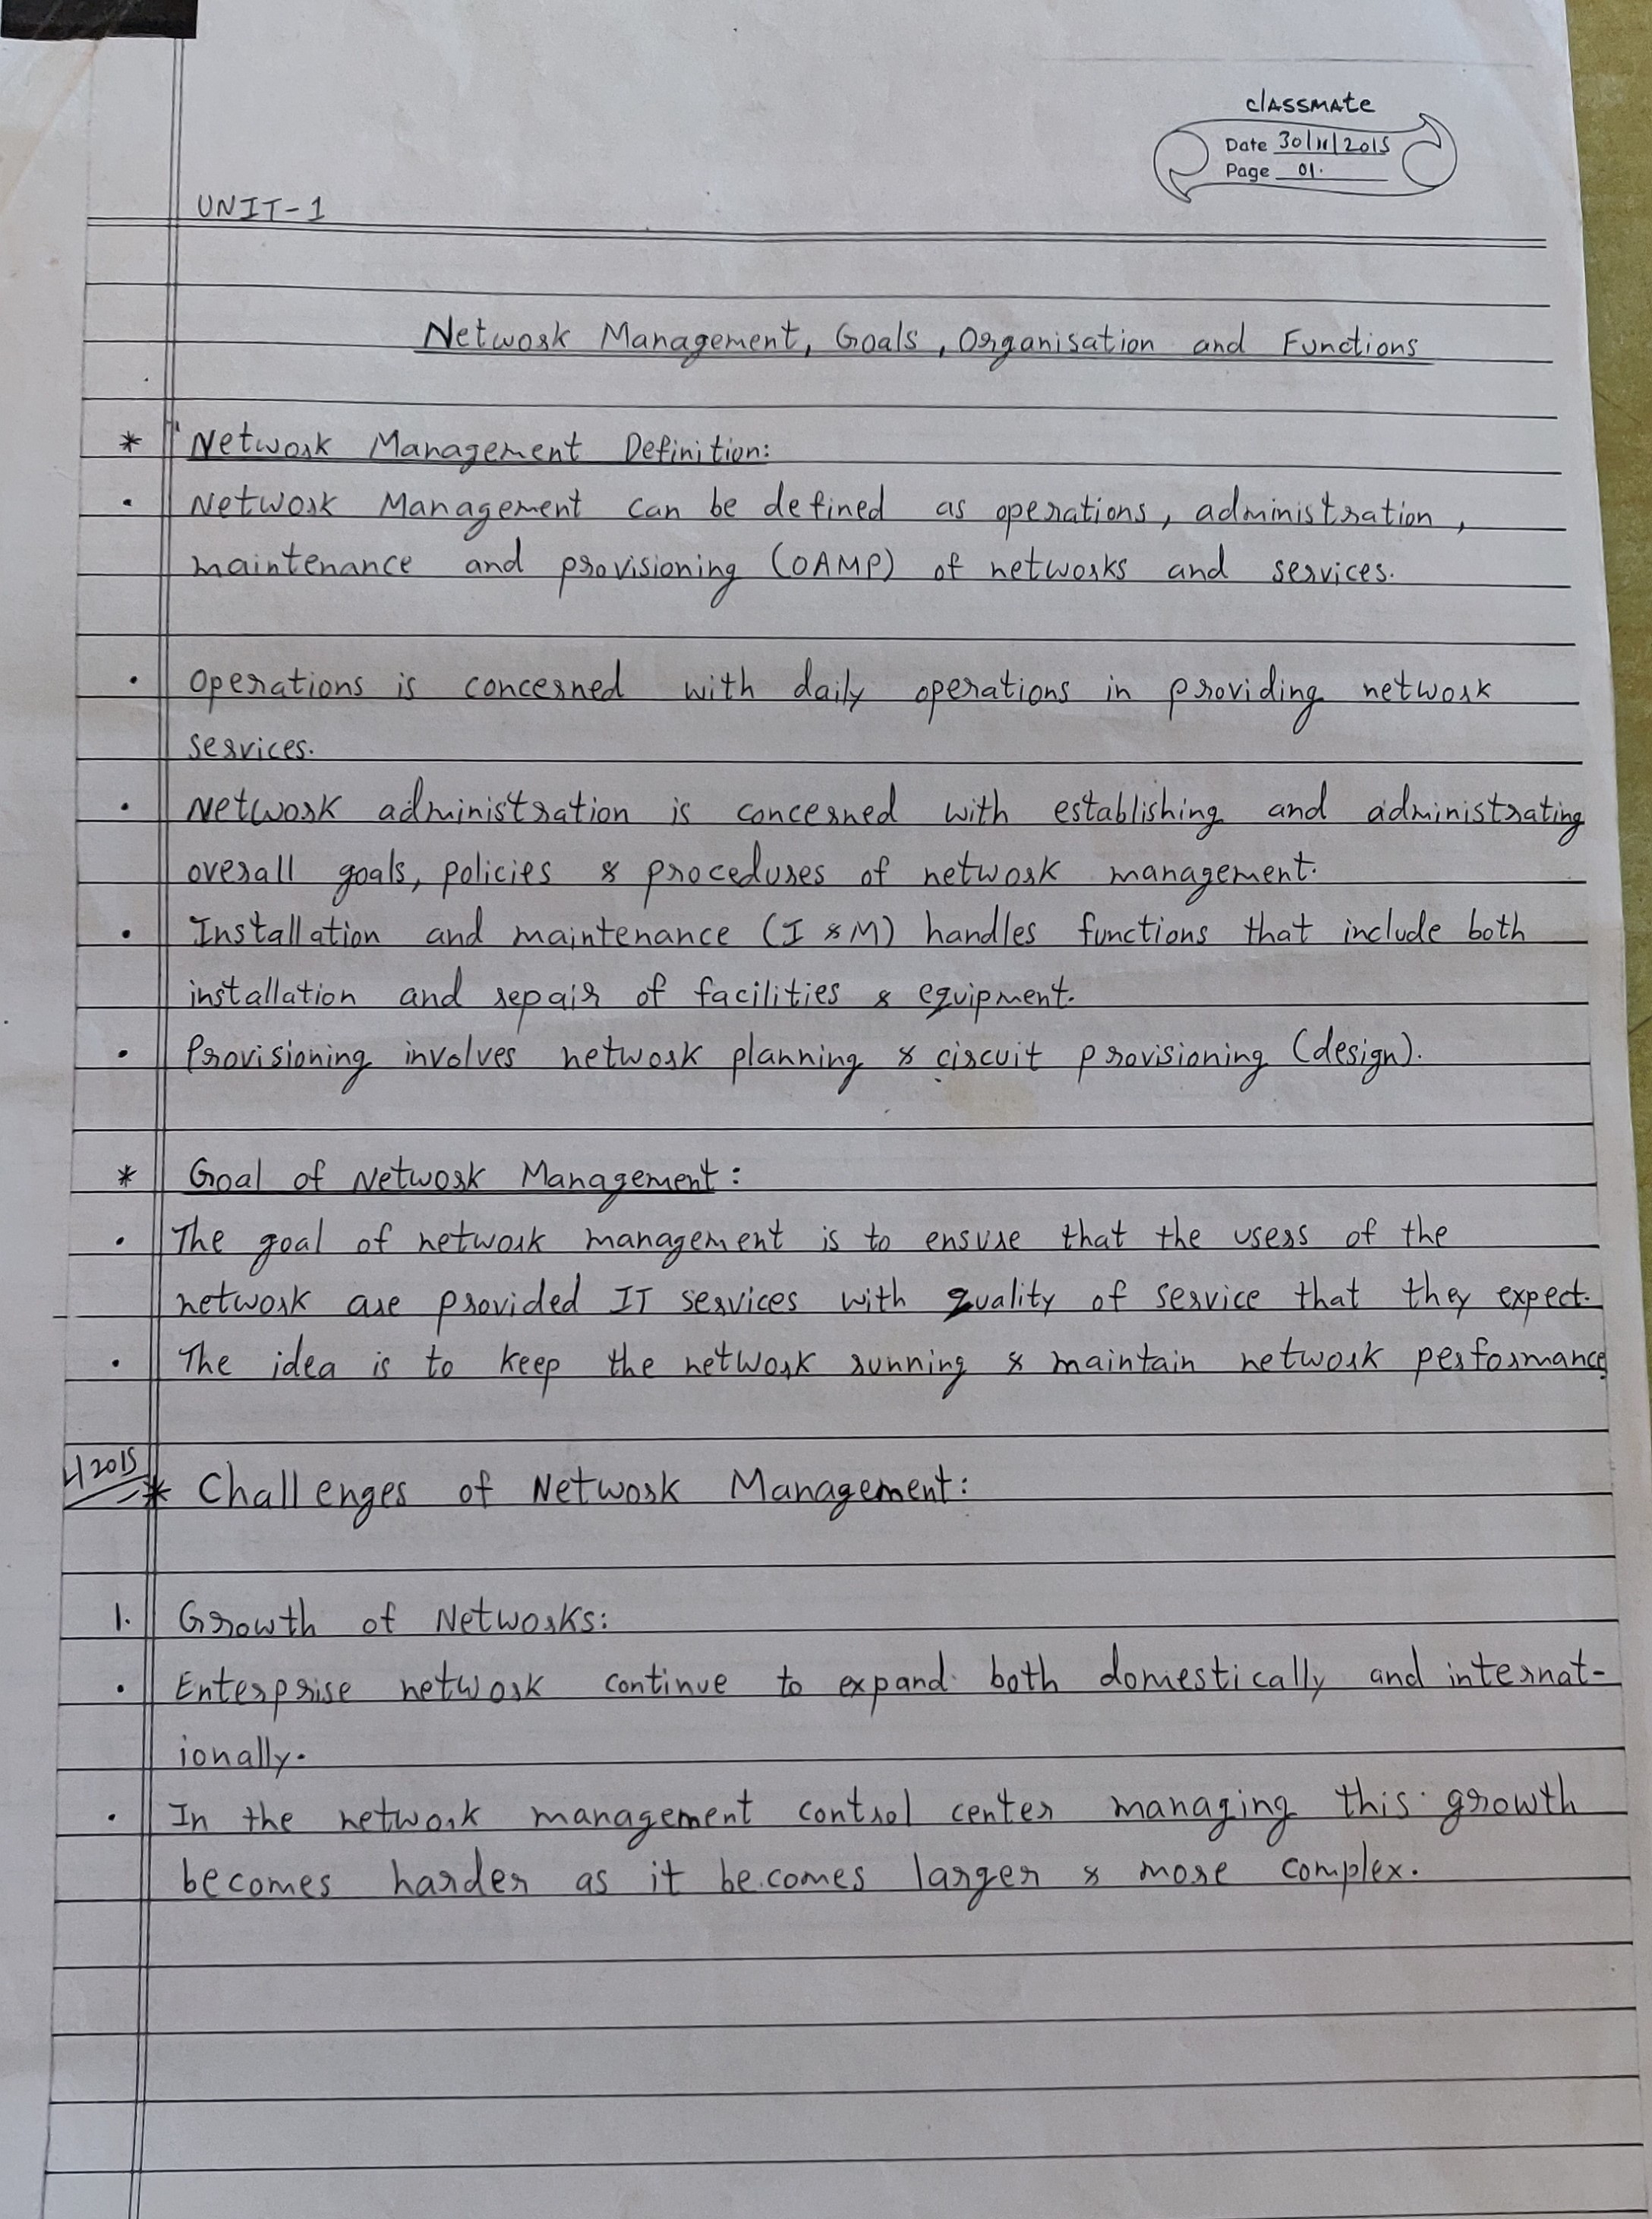 classmate
Date 30/11/2015
Page 01.
UNIT-1
Network Management, Goals, Organisation and Functions
* Network Management Definition:
• Network Management can be defined as operations, administration,
maintenance and provisioning (OAMP) of networks and services.
• Operations is concerned with daily operations in providing network
services.
• Network administration is concerned with establishing and administrating
overall goals, policies & procedures of network management.
• Installation and maintenance (I & M) handles functions that include both
installation and repair of facilities & equipment.
• Provisioning involves network planning & circuit provisioning (design).
* Goal of Network Management:
• The goal of network management is to ensure that the users of the
network are provided IT services with quality of service that they expect.
• The idea is to keep the network running & maintain network performance.
2015
* Challenges of Network Management:
1. Growth of Networks:
• Enterprise network continue to expand both domestically and internat-
ionally.
• In the network management control center managing this growth
becomes harder as it becomes larger & more complex.